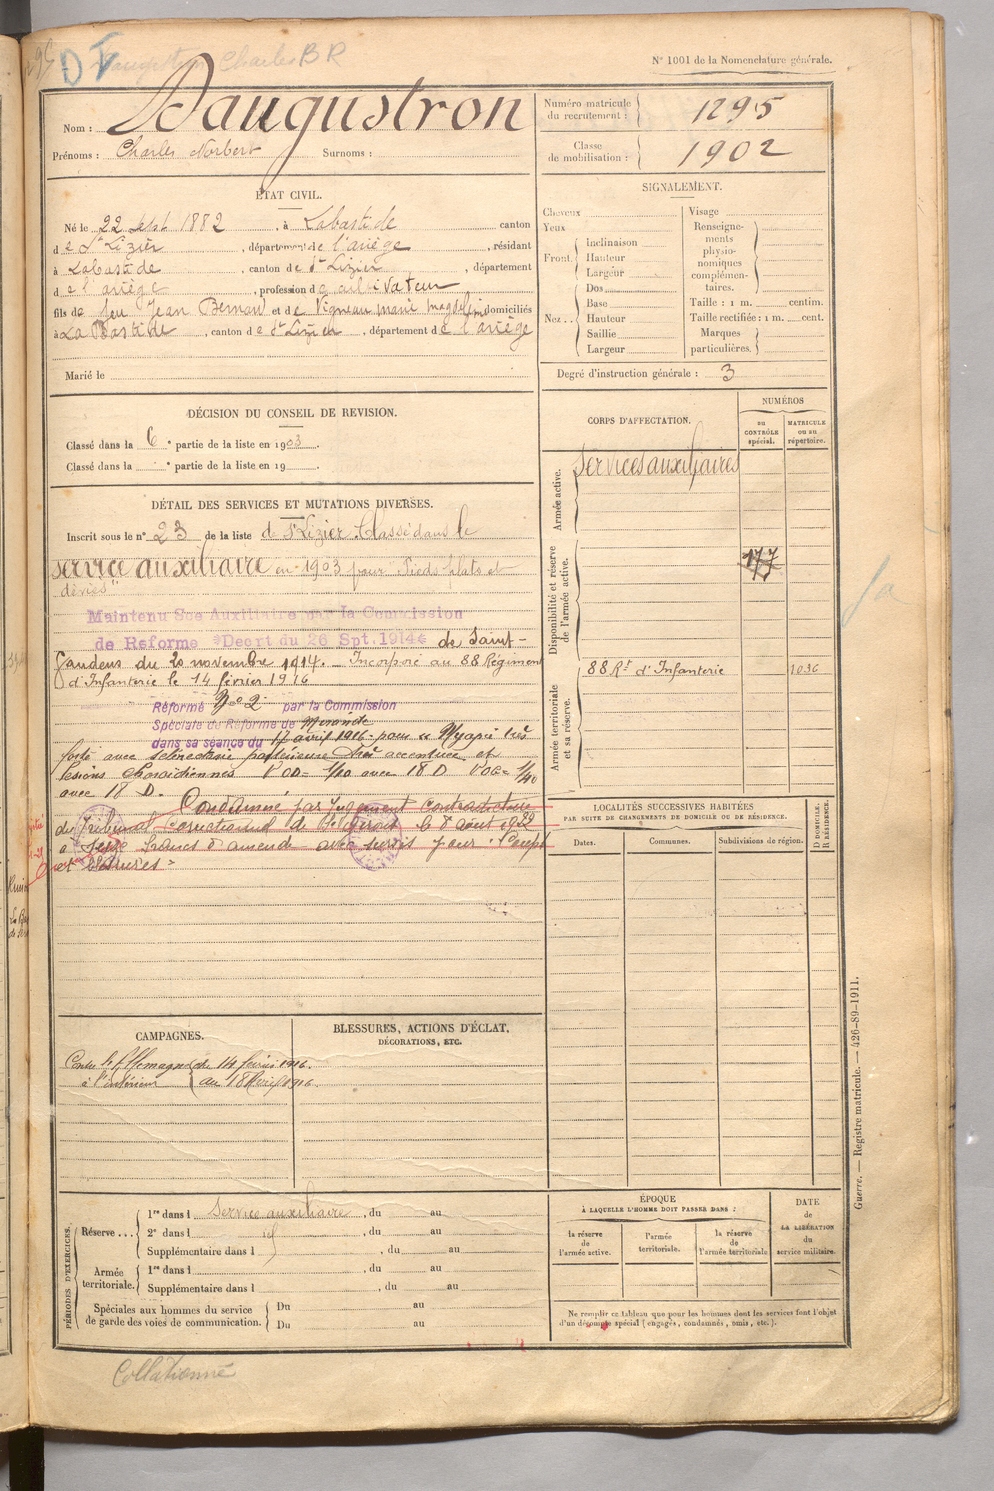 D V Daugustron Charles B R
N° 1001 de la Nomenclature générale.
Nom : Daugustron
Prénoms : Charles Norbert Surnoms :
Numéro matricule du recrutement : 1295
Classe de mobilisation : 1902
ÉTAT CIVIL.
Né le 22 Sept 1882, à Labastide canton
de St Lizier, département de l'ariège, résidant
à Labastide, canton de St Lizier, département
de l'ariège, profession d cultivateur
fils de feu Jean Bernard et de Vigneau marie magdelein domiciliés
à La Bastide, canton de St Lizier, département de l'ariège
Marié le
SIGNALEMENT.
Cheveux
Yeux
Front. Inclinaison
Hauteur
Largeur
Nez.. Dos
Base
Hauteur
Saillie
Largeur
Visage
Renseignements physionomiques complémentaires.
Taille : 1 m. centim.
Taille rectifiée : 1 m. cent.
Marques particulières.
Degré d'instruction générale : 3
DÉCISION DU CONSEIL DE REVISION.
Classé dans la 6e partie de la liste en 1903.
Classé dans la e partie de la liste en 19
CORPS D'AFFECTATION.
NUMÉROS
au CONTRÔLE spécial.
MATRICULE ou au répertoire.
Armée active.
services auxiliaires
Disponibilité et réserve de l'armée active.
177
Armée territoriale et sa réserve.
88 Rt d'Infanterie 1036
DÉTAIL DES SERVICES ET MUTATIONS DIVERSES.
Inscrit sous le n° 23 de la liste de St Lizier. Classé dans le
service auxiliaire en 1903 pour "Pieds plats et
déviés"
Maintenu Sce Auxiliaire par la Commission
de Reforme *Decrt du 26 Spt. 1914* de Saint-
Gaudens du 20 novembre 1914. Incorporé au 88 Régiment
d'Infanterie le 14 février 1916
Réformé No 2 par la Commission
Spéciale de Réforme de Mirande
dans sa séance du 17 avril 1916 pour " Myopie très
forte avec sclérectasie postérieure très accentuée et
lésions choroïdiennes VOD = 1/20 avec 18 D VOG = 1/40
avec 18 D.
Condamné par jugement contradictoire
du Tribunal Correctionnel de St Girons le 8 août 1922
à seize francs d'amende avec sursis pour " Coups
et blessures "
LOCALITÉS SUCCESSIVES HABITÉES
PAR SUITE DE CHANGEMENTS DE DOMICILE OU DE RÉSIDENCE.
Dates.
Communes.
Subdivisions de région.
D DOMICILE. R RÉSIDENCE.
CAMPAGNES.
Contre l'Allemagne du 14 février 1916.
à l'intérieur au 18 Avril 1916
BLESSURES, ACTIONS D'ÉCLAT,
DÉCORATIONS, ETC.
PÉRIODES D'EXERCICES.
Réserve ... 1re dans l Service auxiliaire, du au
2e dans l, du au
Supplémentaire dans l, du au
Armée territoriale. 1re dans l, du au
Supplémentaire dans l, du au
Spéciales aux hommes du service de garde des voies de communication. Du au
Du au
ÉPOQUE
À LAQUELLE L'HOMME DOIT PASSER DANS :
la réserve de l'armée active.
l'armée territoriale.
la réserve de l'armée territoriale
DATE de LA LIBÉRATION du service militaire.
Ne remplir ce tableau que pour les hommes dont les services font l'objet
d'un décompte spécial (engagés, condamnés, omis, etc.).
Guerre. — Registre matricule. — 426-89-1911.
Collationné